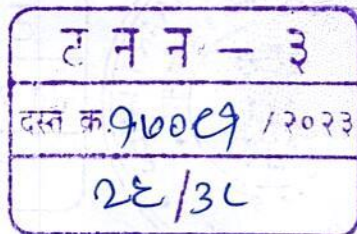 ट न न - ३
दस्त क्र. १७०८९ /२०२३
२६/३८